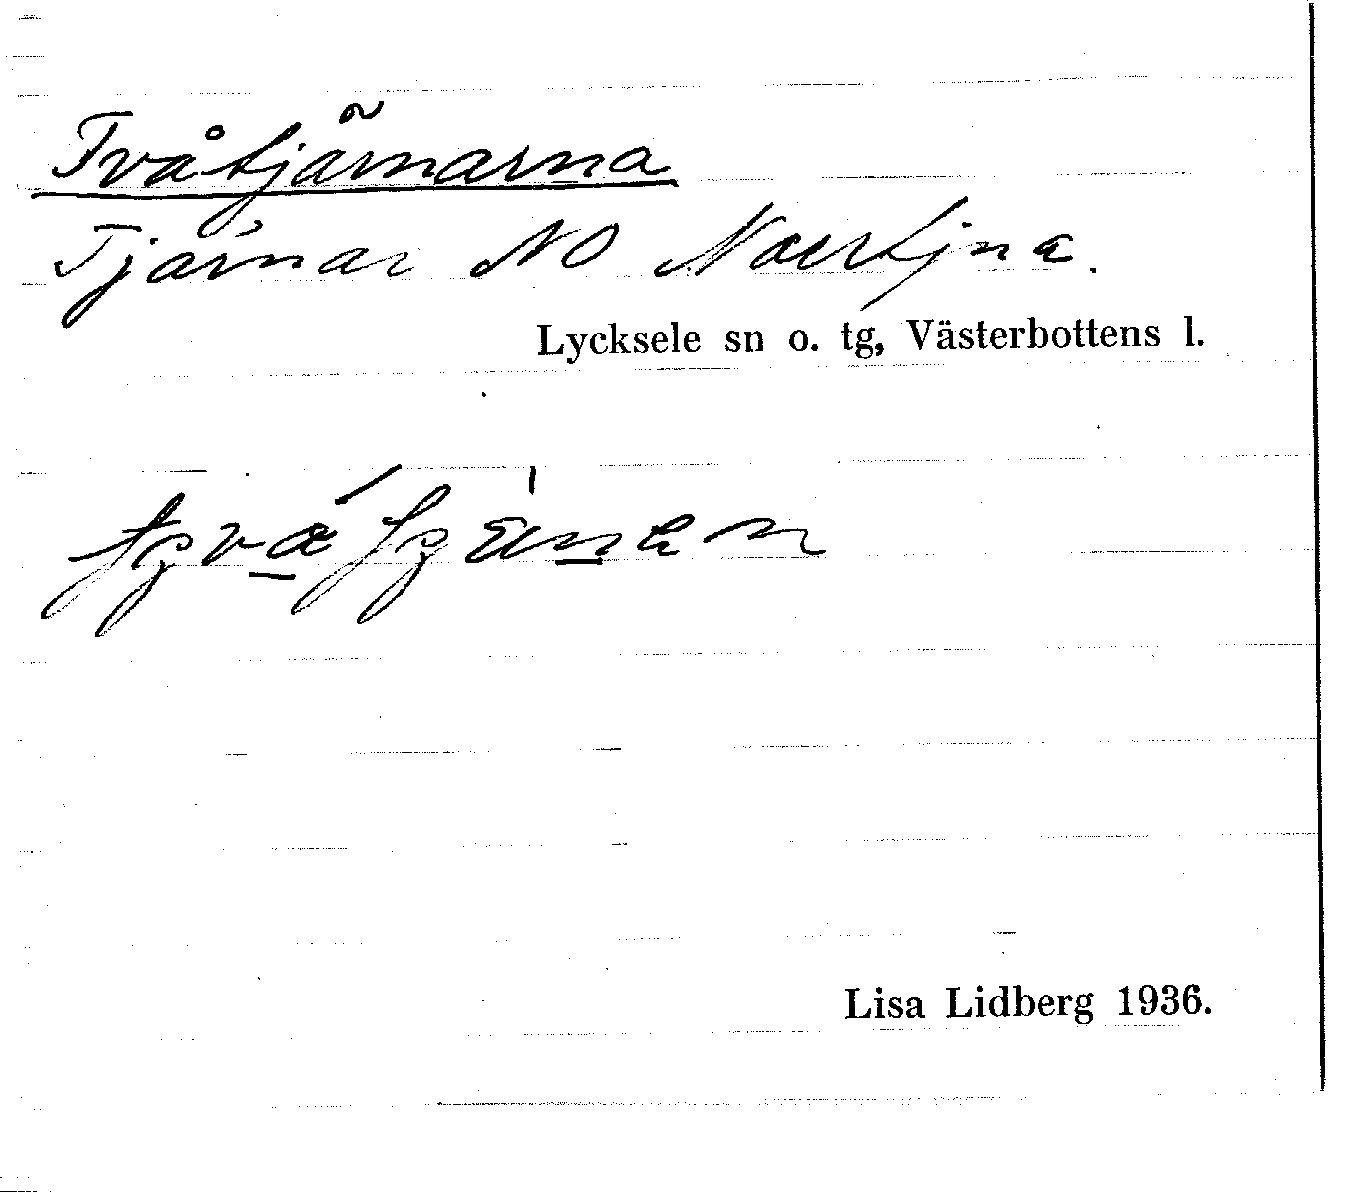 Tvåtjärnarna
Tjärnar NO
Lycksele sn o. tg, Västerbottens l.
Lisa Lidberg 1936.